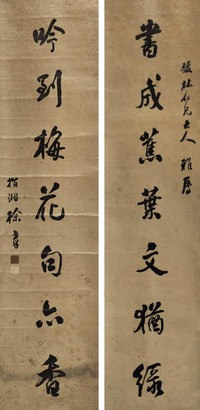 仁兄大人 雅屬
書成蕉葉文猶綠
吟到梅花句亦香